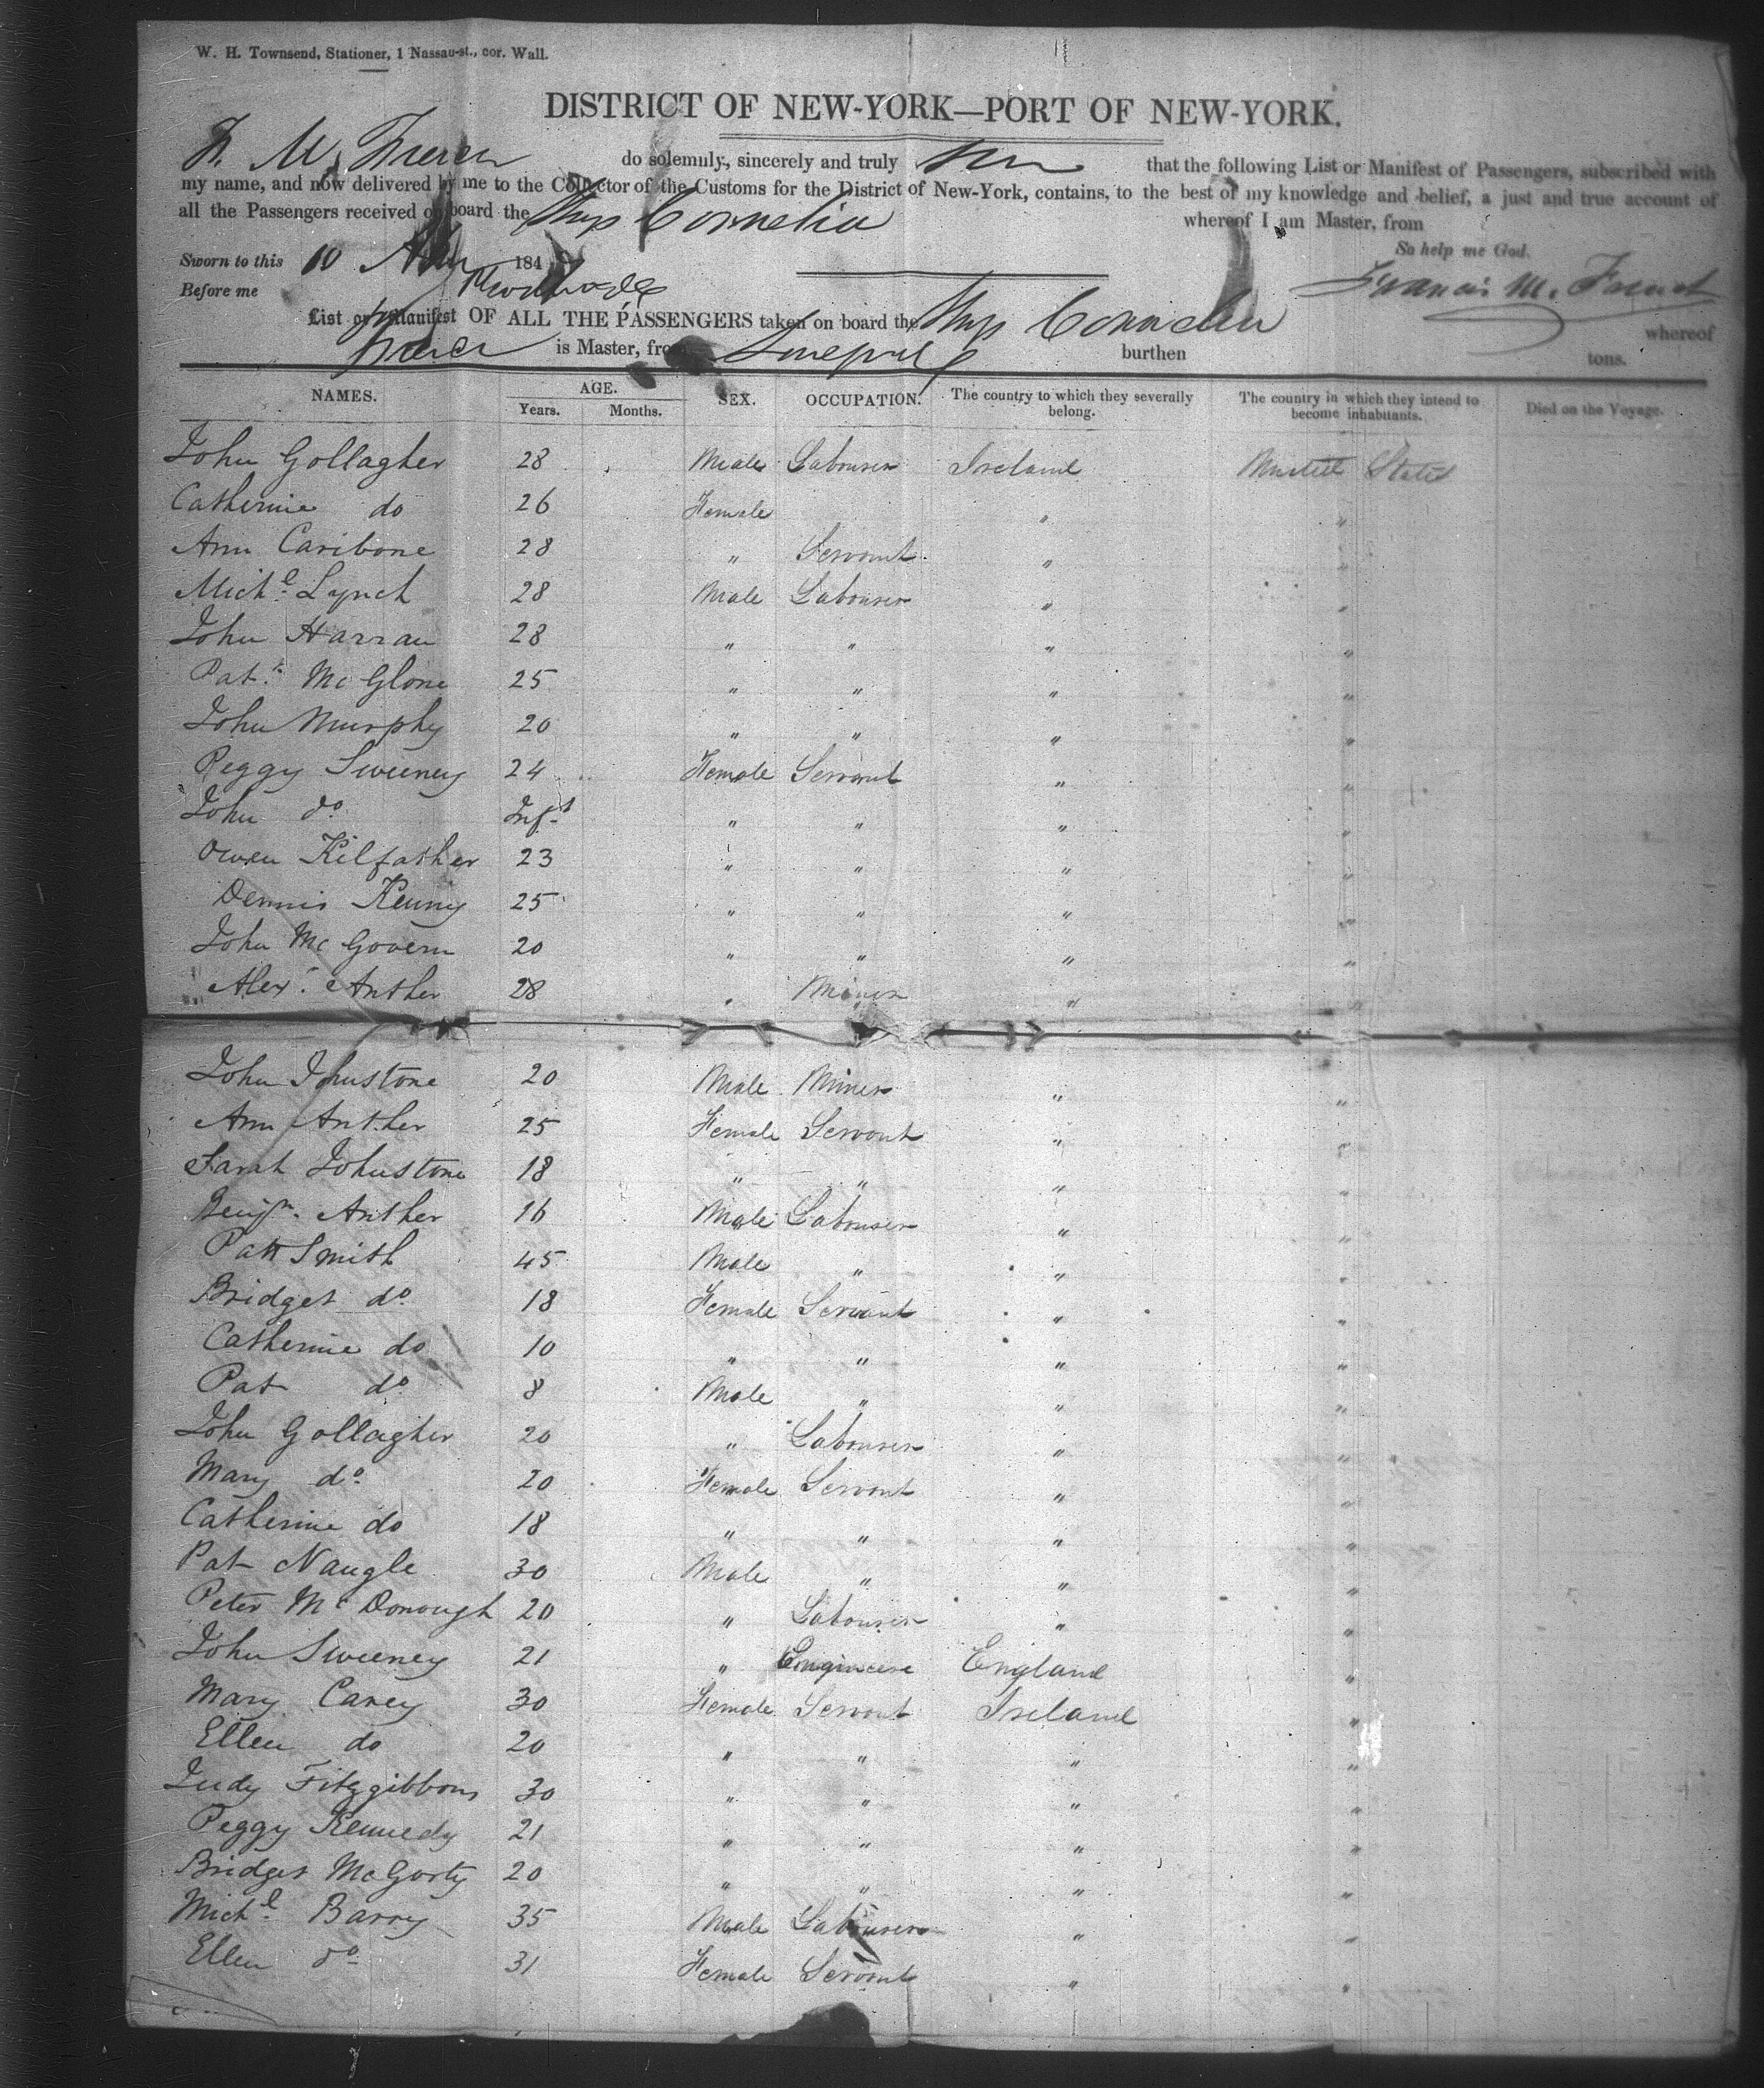 W. H. Townsend, Stationer, 1 Nassau-st., cor. Wall.
DISTRICT OF NEW-YORK—PORT OF NEW-YORK.
F. M. French do solemnly, sincerely and truly that the following List or Manifest of Passengers, subscribed with
my name, and now delivered by me to the Collector of the Customs for the District of New-York, contains, to the best of my knowledge and belief, a just and true account of
all the Passengers received on board the Ship Cornelia whereof I am Master, from
So help me God.
Sworn to this 10 184
Before me Francis M. French
List or Manifest OF ALL THE PASSENGERS taken on board the Ship Cornelia whereof
French is Master, from Liverpool burthen tons.
NAMES. AGE. SEX. OCCUPATION. The country to which they severally belong. The country in which they intend to become inhabitants. Died on the Voyage.
Years. Months.
John Gollagher 28 Male Labourer Ireland United States
Catherine do 26 Female " "
Ann Caribone 28 " Servant " "
Michl Lynch 28 Male Labourer " "
John Harran 28 " " " "
Patk McGlone 25 " " " "
John Murphy 20 " " " "
Peggy Sweeney 24 Female Servant " "
John do Inft " " " "
Owen Kilfather 23 " " " "
Dennis Kenny 25 " " " "
John McGovern 20 " " " "
Alexr Anther 28 " Miner " "
John Jhustone 20 Male Miner " "
Ann Anther 25 Female Servant " "
Sarah Johnstone 18 " " " "
Benjn Anther 16 Male Labourer " "
Patt Smith 45 Male " " "
Bridget do 18 Female Servant " "
Catherine do 10 " " " "
Pat do 8 Male " " "
John Gollagher 20 " Labourer " "
Mary do 20 Female Servant " "
Catherine do 18 " " " "
Pat Naugle 30 Male " " "
Peter McDonough 20 " Labourer " "
John Sweeney 21 " Engineer England "
Mary Carey 30 Female Servant Ireland "
Ellen do 20 " " " "
Judy Fitzgibbons 30 " " " "
Peggy Kennedy 21 " " " "
Bridget McGorty 20 " " " "
Michl Barry 35 Male Labourer " "
Ellen do 31 Female Servant " "